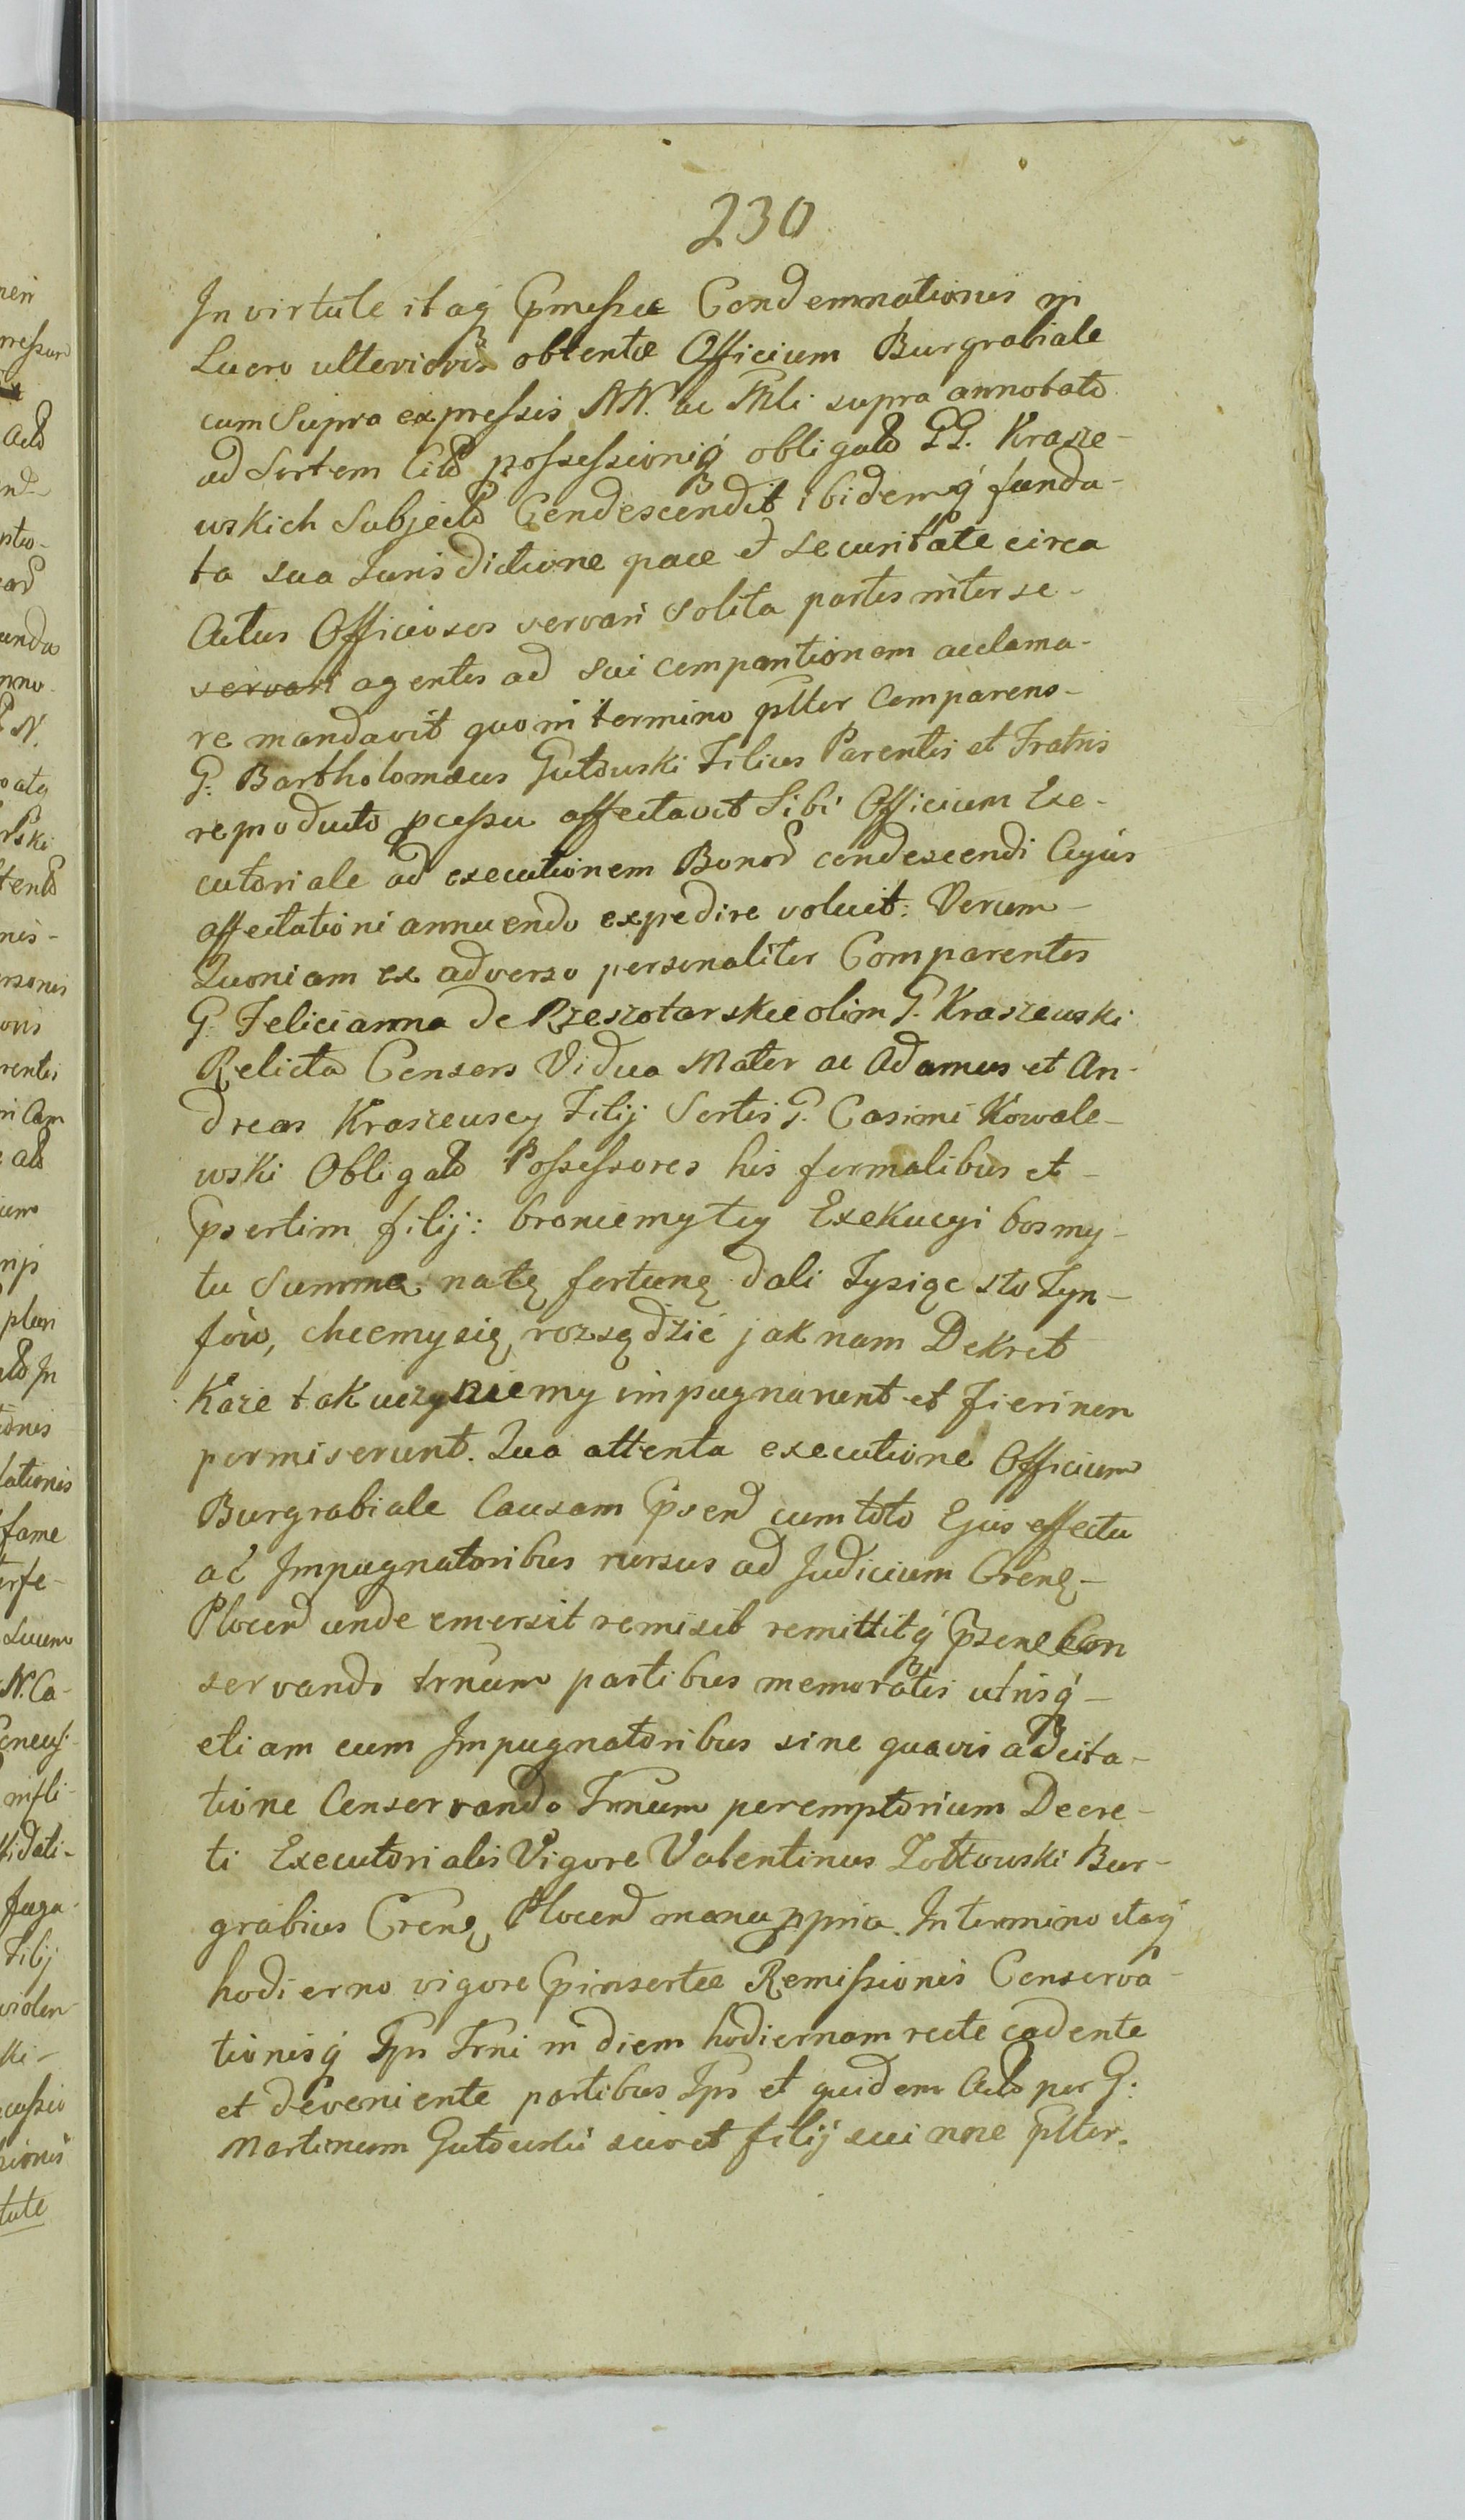 230
In virtute itaq́ Pmissæ Condemnationis in
Lucro ulterioris obtentæ Officium Burgrabiale
cum Supra expressis NN. ac Mli supra annotato
ad Sortem Cito possessioniq́ obligato GG. Krasze-
wskich Subjecto Condescendit ibidemq́ funda-
ta sua Jurisdictione pace et securitate circa
Actus Officiosos servari Solita partes inter se-
servari agentes ad sui compantionem acclama-
re mandavit quo in termino pltter Comparens-
G. Bartholomæus Gutowski Filius Parentis et Fratris
reproducto pcessu affectavit Sibi Officium Exe-
cutoriale ad executionem Bonor condescendi Cujus
affectationi annuendo expedire voluit: Verum-
Quoniam ex adverso personaliter Comparentes
G. Felicianna de Rzeszotarskie olim G. Kraszewski
Relicta Consors Vidua Mater ac Adamus et An-
dreas Kraszewscy Filij Sortis G. Casimi Kowale-
wski Obligato Possessores his formalibus et-
Psertim filij: broniemy tey Exekucyi bosmy-
tu Summę natę fortunę dali Tysiąc sto Tyn-
fów, chcemysię rozsądzić jak nam Dekret
Kaze tak uczyniemy impugnarunt et fieri non
permiserunt. Qua attenta executione Officium
Burgrabiale Causam Psend cum toto Ejus effectu
ac Impugnatoribus rursus ad Judicium Crene-
Plocend unde emersit remisit remittitq́ Psene Con
servando trnum partibus memoratis utrisq́-
etiam cum Impugnatoribus sine quavis adcita-
tione Conservando Trnum peremptorium Decre-
ti Executorialis Vigore Valentinus Zołtowski Bur-
grabius Crene Plocend manu ppria. In termino itaq́
hodierno vigore Pinsertæ Remissionis Conserva-
tionisq́ Ips Trni in diem hodiernam recte cadente
et deveniente partibus Ips et quidem Acto per G:
Martinum Gutowski suo et filij sui nne pltter.